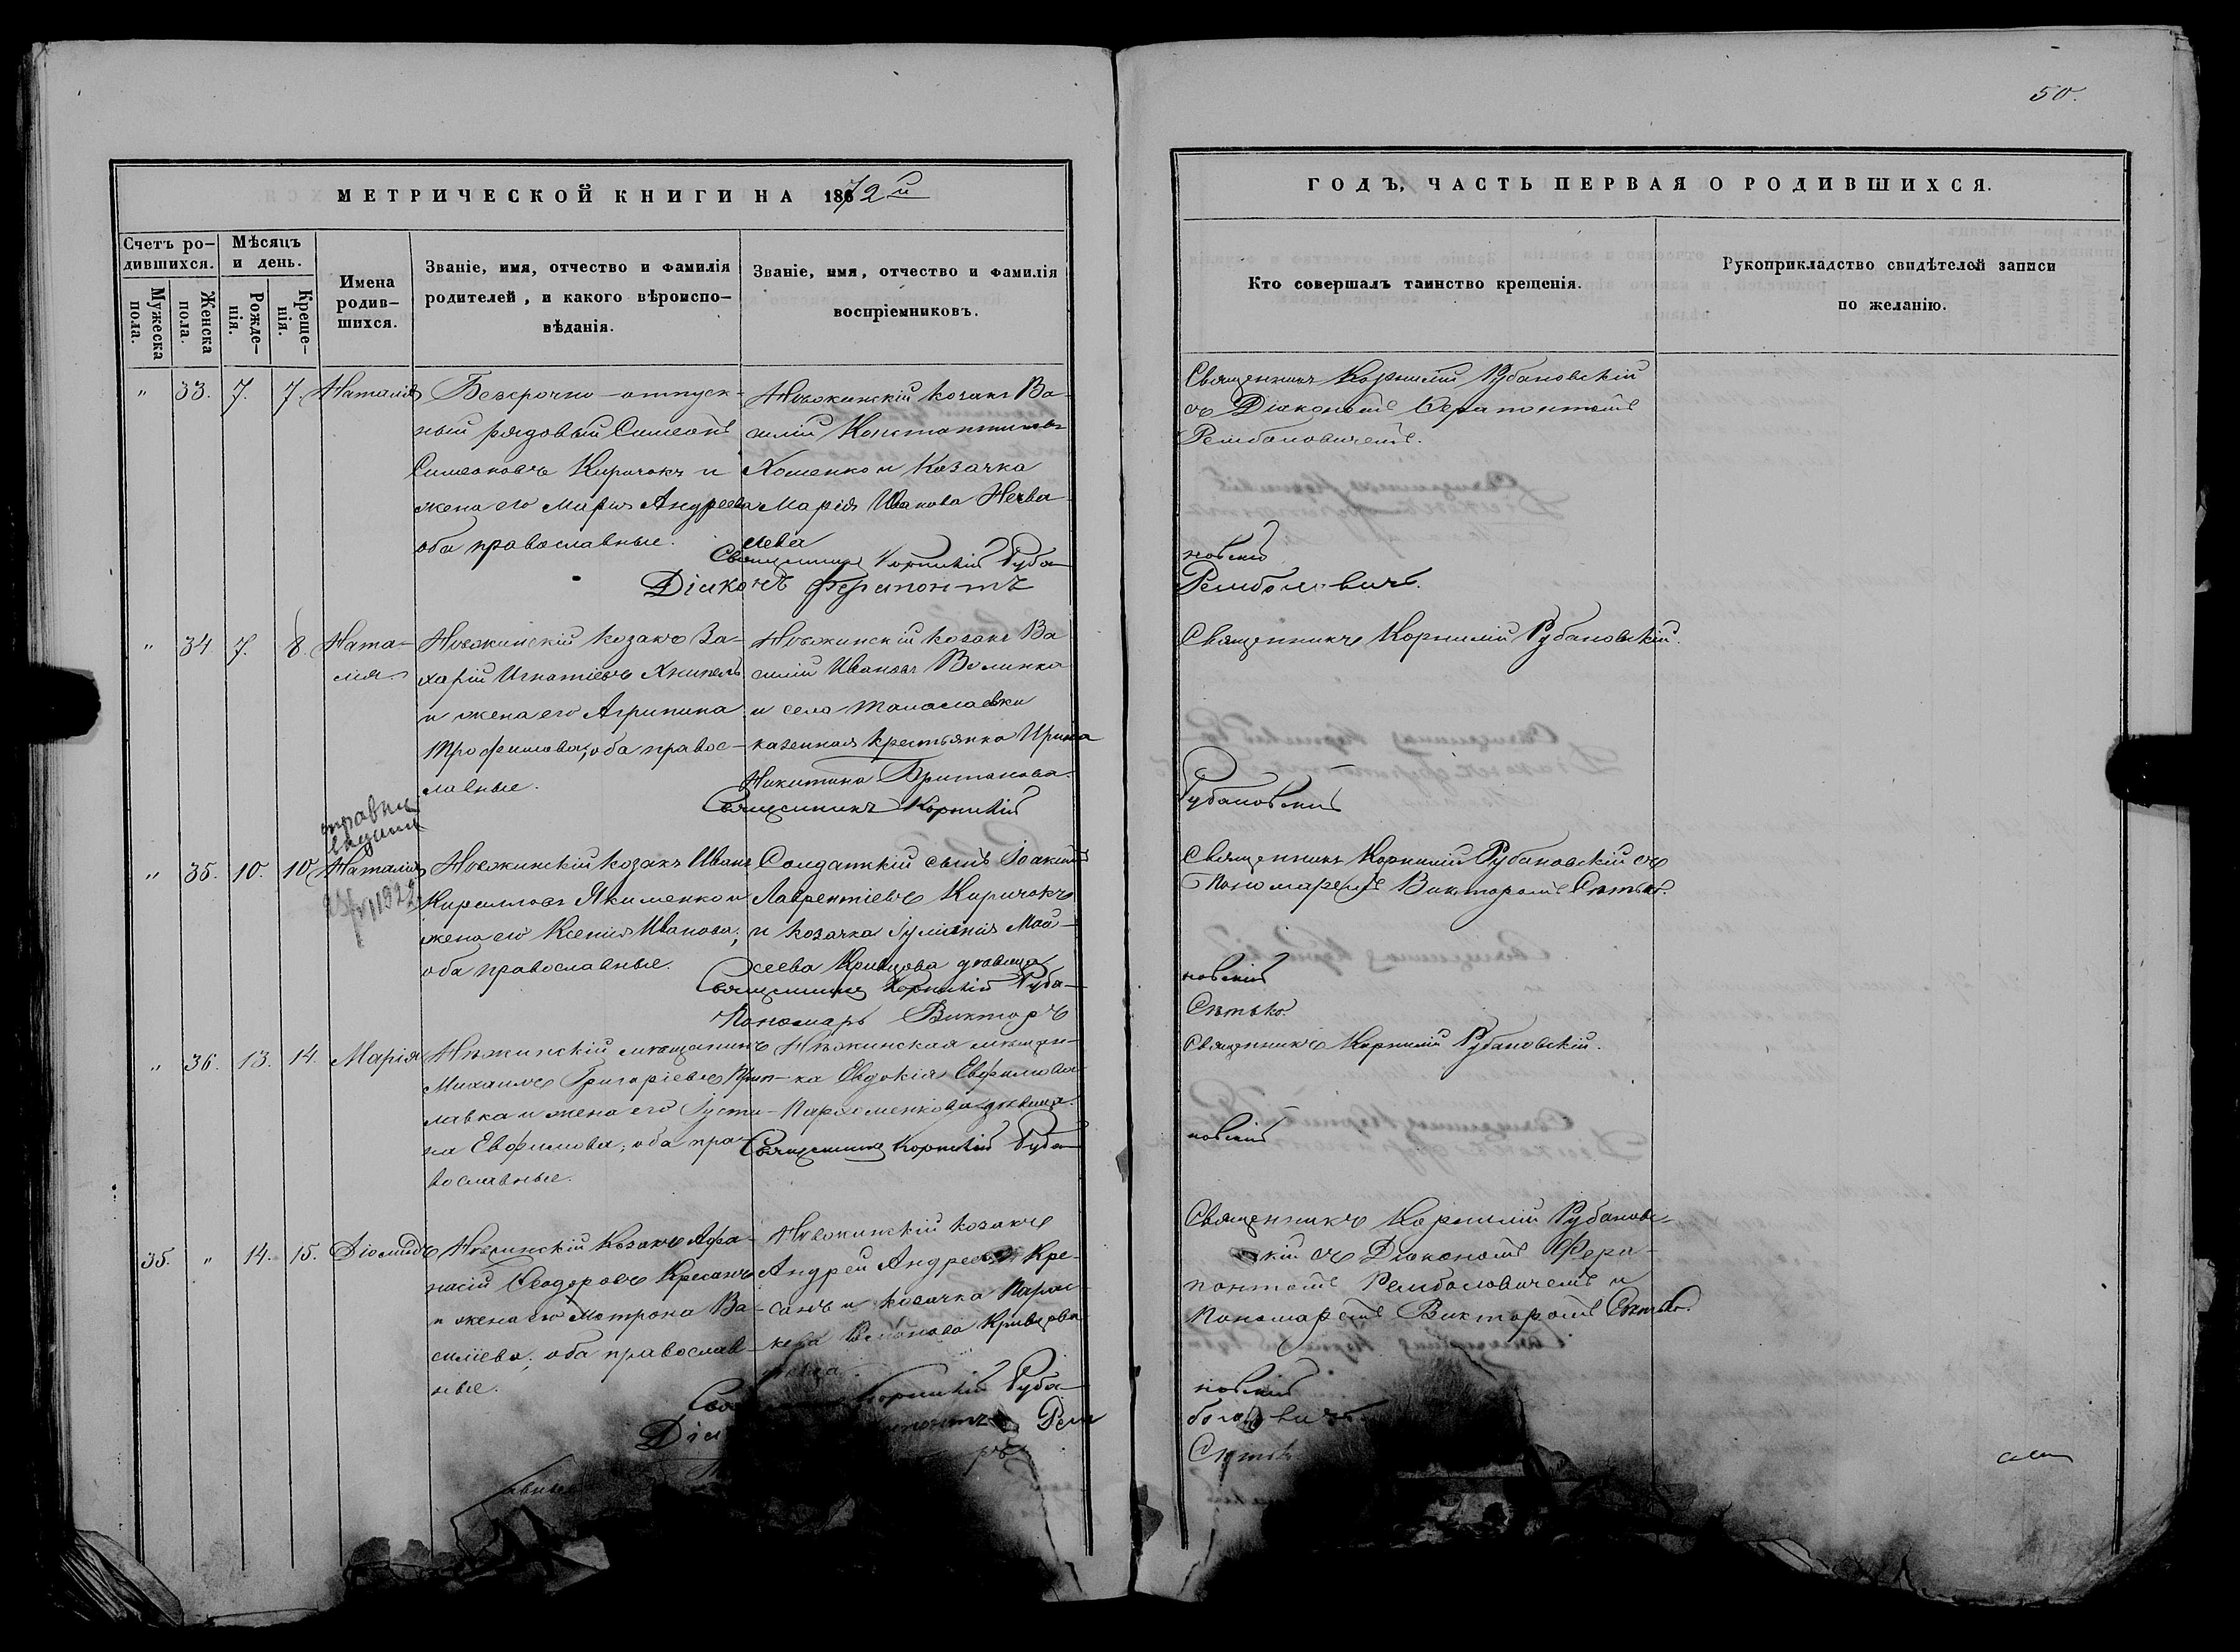 50.
МЕТРИЧЕСКОЙ КНИГИ НА 1872й
ГОДЪ, ЧАСТЬ ПЕРВАЯ О РОДИВШИХСЯ.
Счетъ ро-
дившихся.
Мужеска
пола.
Женска
пола.
Мѣсяцъ
и день.
Рожде-
нія.
Креще-
нія.
Имена
родив-
шихся.
Званіе, имя, отчество и фамилія
родителей, и какого вѣроиспо-
вѣданія.
Званіе, имя, отчество и фамилія
воспріемниковъ.
Кто совершалъ таинство крещенія.
Рукоприкладство свидѣтелей записи
по желанію.
" 33. 7. 7. Наталія
Безсрочно-отпуск-
ный рядовый Симеонъ
Симеоновъ Киричокъ и
жена его Марія Андреева
оба православные.
Нѣжинскій козакъ Ва-
силій Константиновъ
Хоменко и козачка
Марія Иванова
Священникъ Корнилій Руба-
Діаконъ Ферапонтъ
Священникъ Корнилій Рубановскій
съ Діакономъ Ферапонтомъ
Рембаловичемъ.
новскій
Рембаловичъ.
" 34. 7. 8. Ната-
лія.
Нѣжинскій козакъ За-
харій Игнатіевъ
и жена его Агрипина
Трофимова; оба правос-
лавные.
Нѣжинскій козакъ Ва
силій Ивановъ Волинко
и села Талалаевки
казенная крестьянка Ирина
Никитина Британова.
Священникъ Корнилій
Священникъ Корнилій Рубановскій.
Рубановскій
" 35. 10. 10. Наталія
1922
Нѣжинскій козакъ Иванъ
Кирилловъ Якименко и
жена его Ксенія Иванова;
оба православные.
Солдатскій сынъ Іоакимъ
Лаврентіевъ Киричокъ
и козачка Іуліанія Мои-
сеева Кривцова дѣвица
Священникъ Корнилій Руба-
Пономарь Викторъ
Священникъ Корнилій Рубановскій съ
Пономаремъ Викторомъ Сѣтько.
новскій
Сѣтько.
" 36. 13. 14. Марія
Нѣжинскій мѣщанинъ
Михаилъ Григоріевъ
лавка и жена его Іусти-
на Евфимова; оба пра-
вославные.
Нѣжинская мѣщан-
ка Евдокія Евфимова
Пархоменкова дѣвица.
Священникъ Корнилій Руба
Священникъ Корнилій Рубановскій.
новскій
35. " 14. 15. Діомидъ
Нѣжинскій козакъ Афа-
насій Ѳеодоровъ Кресанъ
и жена его Мотрона Ва-
силіева; оба православ-
ные.
Нѣжинскій козакъ
Андрей Андреевъ Кре-
санъ и козачка Парас-
кева Кривцова
Корнилій Руба-
Рем
Священникъ Корнилій Рубанов-
скій съ Діакономъ Фера-
понтомъ Рембаловичемъ и
Пономаремъ Викторомъ Сѣтько.
новскій